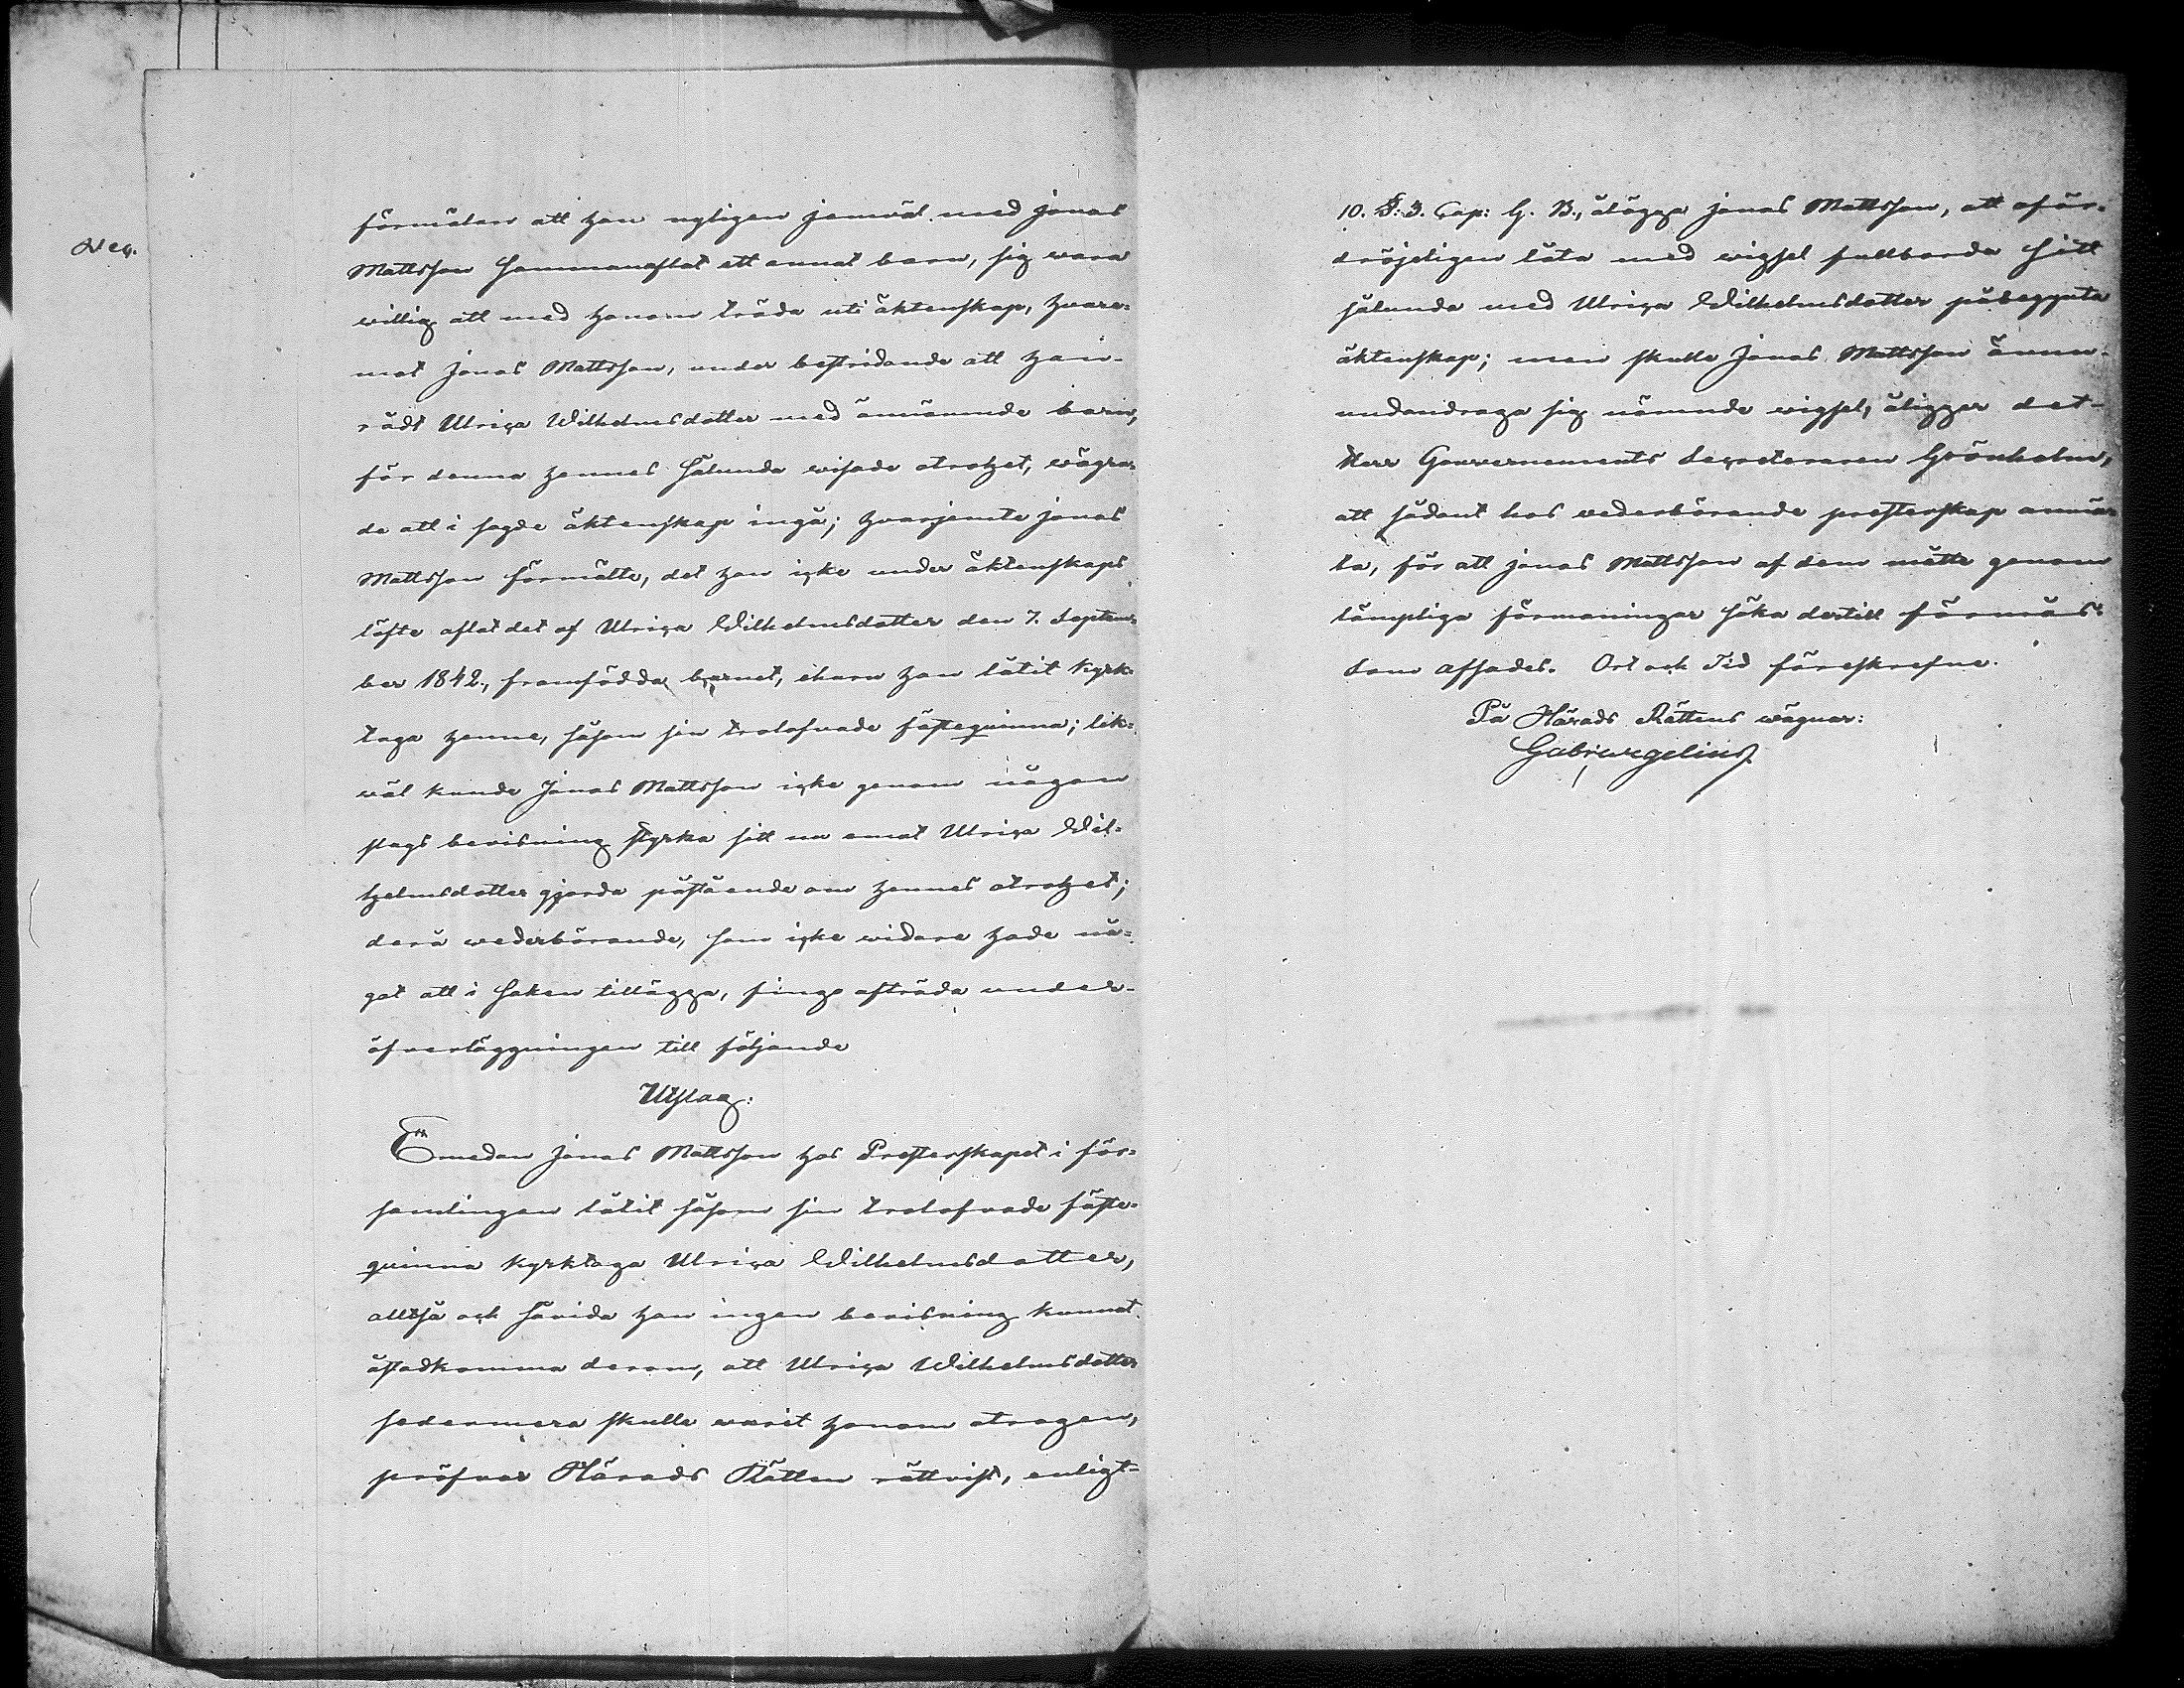 Neq.
förmälan att han nyligen jemväl med Jonas
Mattsson sammanaflat ett annat barn, sig vara
willig att med honom träda uti äktenskap, hvare-
mot Jonas Mattsson, under bestridande att han
rådt Ulrica Wilhelmsdotter med ännämnde barn,
för denna hennes sålunda wisade otrohet, wägra-
de att i sagde äktenskap ingå; hvarjemte Jonas
Mattsson förmälte, det han icke under äktenskaps
löfte aflat det af Ulrica Wilhelmsdotter den 7. Septem-
ber 1842., framfödda barnet, ehuru han låtit kyrk-
taga henne, såsom sin trolofvade fästeqvinna; lik-
väl kunde Jonas Mattsson icke genom någon
slags bevisning styrka sitt nu emot Ulrica Wil-
helmsdotter gjorda påstående om hennes otrohet;
derå wederbörande, som icke widare hade nå-
got att i saken tillägga, fingo afträda under
öfverläggningen till följande
Utslag:
Emedan Jonas Mattsson hos Presterskapet i för-
samlingen låtit såsom sin trolofvade fäste-
qvinna kyrktaga Ulrica Wilhelmsdotter,
alltså och såvida han ingen bevisning kunnat
åstadkomma derom, att Ulrica Wilhelmsdotter
sedermera skulle warit honom otrogen,
pröfvar Härads Rätten rättvist, enligt
10. §. 3. Cap: G. B., ålägga Jonas Mattsson, att oför-
dröjeligen låta med wigsel fullborda sitt
sålunda med Ulrica Wilhelmsdotter påbegynta
äktenskap; men skulle Jonas Mattsson ännu
undandraga sig nämnde wigsel, åligger det
Herr Gouvernements Secreteraren Grönholm,
att sådant hos wederbörande presterskap anmäl-
ta, för att Jonas Mattsson af dem måtte genom
lämpliga förmaningar söka dertill förmås.
Som afsades. Ort och Tid föreskrefne.
På Härads Rättens wägnar: